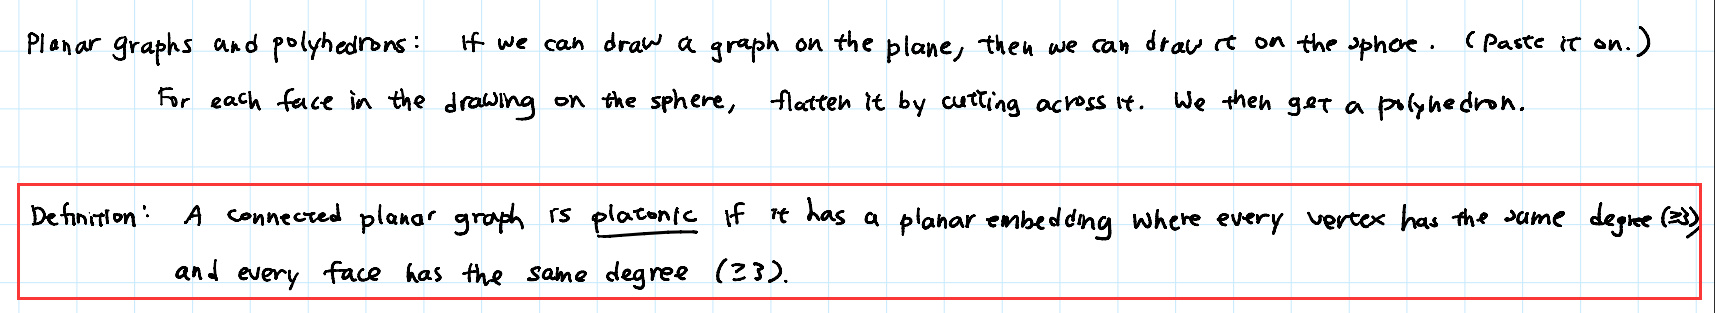 Planar graphs and polyhedrons: If we can draw a graph on the plane, then we can draw it on the sphere. (Paste it on.)
For each face in the drawing on the sphere, flatten it by cutting across it. We then get a polyhedron.
Definition: A connected planar graph is platonic if it has a planar embedding where every vertex has the same degree (≥3),
and every face has the same degree (≥3).